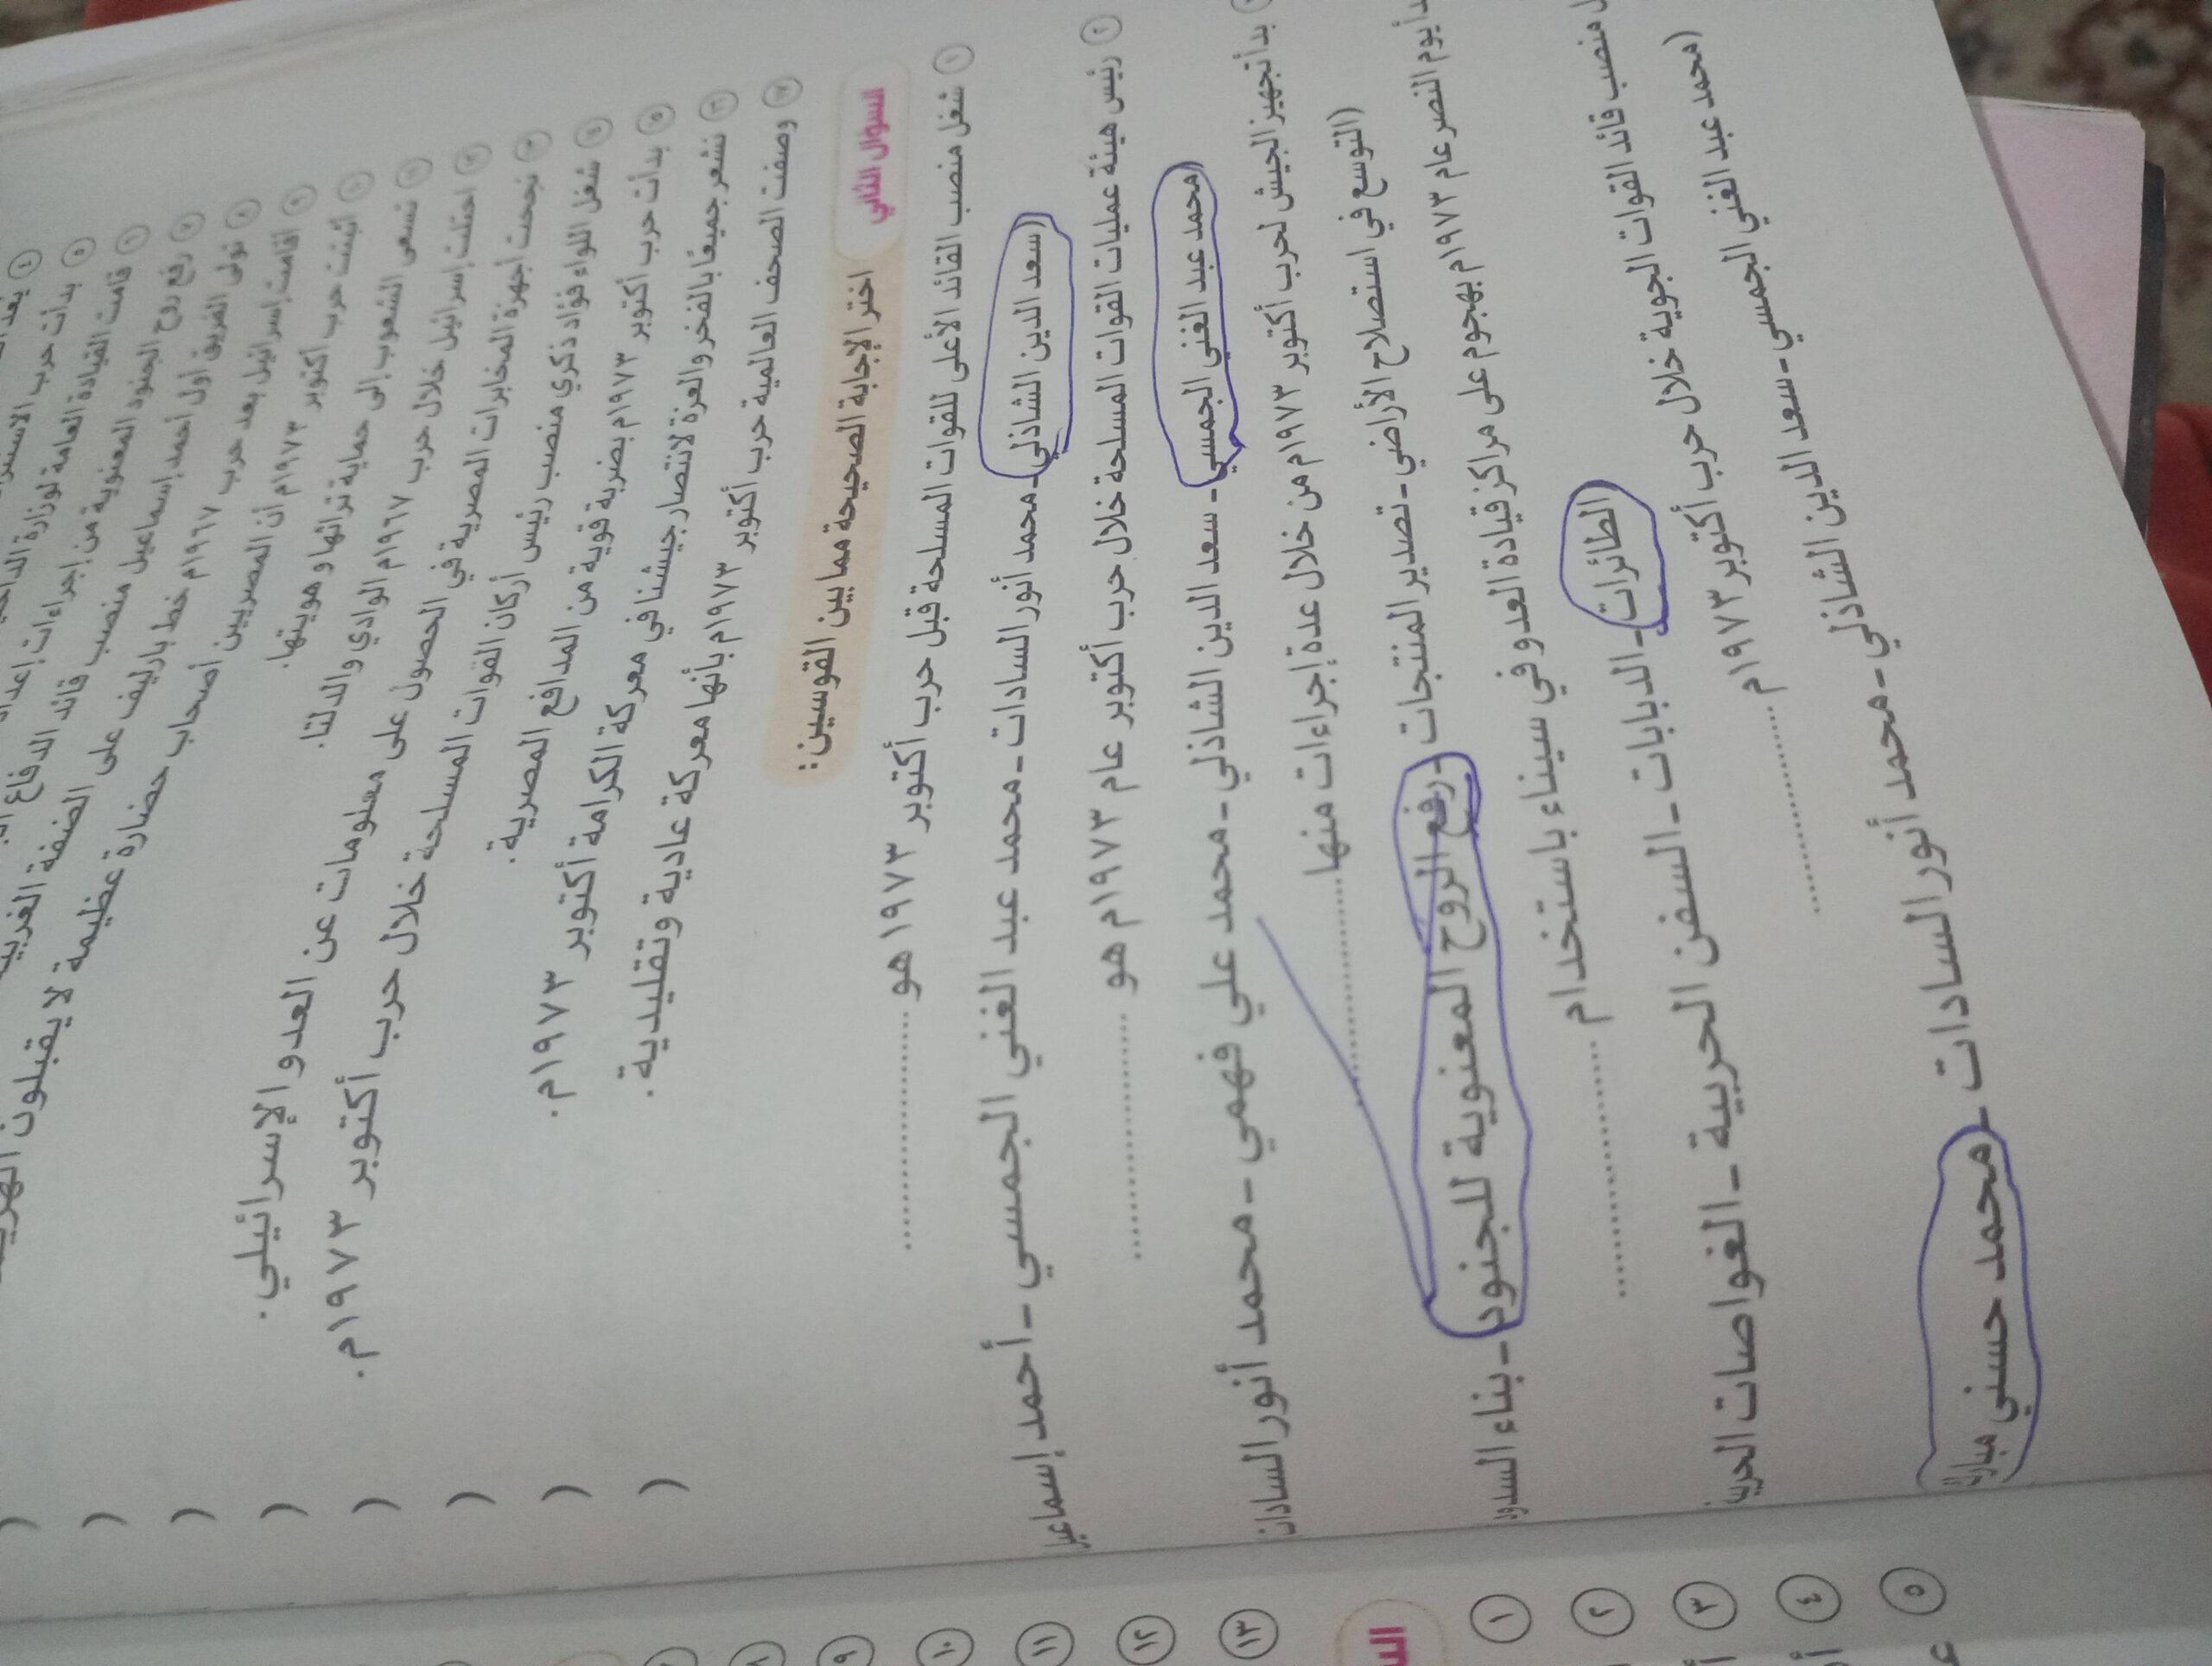 بدأت حرب
قامت القيادة العامة لوزارة
رفع روح الجنود المعنوية من إجراءات
تولى الفريق أول أحمد إسماعيل منصب قائد الدفاع
أقامت إسرائيل بعد حرب ١٩٦٧م خط بارليف على الضفة الغربية
أثبتت حرب أكتوبر ١٩٧٣م أن المصريين أصحاب حضارة عظيمة لا يقبلون
تسعى الشعوب إلى حماية تراثها وهويتها.
احتلت إسرائيل خلال حرب ١٩٦٧م الوادي والدلتا.
نجحت أجهزة المخابرات المصرية في الحصول على معلومات عن العدو الإسرائيلي.
شغل اللواء فؤاد ذكري منصب رئيس أركان القوات المسلحة خلال حرب أكتوبر ١٩٧٣م.
١٥ بدأت حرب أكتوبر ١٩٧٣م بضربة قوية من المدافع المصرية.
١٦ نشعر جميعًا بالفخر والعزة لانتصار جيشنا في معركة الكرامة أكتوبر ١٩٧٣م.
١٧ وصفت الصحف العالمية حرب أكتوبر ١٩٧٣م بأنها معركة عادية وتقليدية.
السؤال الثاني اختر الإجابة الصحيحة مما بين القوسين:
١ شغل منصب القائد الأعلى للقوات المسلحة قبل حرب أكتوبر ١٩٧٣ هو ..............
(سعد الدين الشاذلي - محمد أنور السادات - محمد عبد الغني الجمسي - أحمد إسماعيل
٢ رئيس هيئة عمليات القوات المسلحة خلال حرب أكتوبر عام ١٩٧٣م هو ..............
(محمد عبد الغني الجمسي - سعد الدين الشاذلي - محمد علي فهمي - محمد أنور السادات
بدأ تجهيز الجيش لحرب أكتوبر ١٩٧٣م من خلال عدة إجراءات منها ..............
(التوسع في استصلاح الأراضي - تصدير المنتجات - رفع الروح المعنوية للجنود - بناء السدود
يوم النصر عام ١٩٧٣م بهجوم على مراكز قيادة العدو في سيناء باستخدام ..............
(الطائرات - الدبابات - السفن الحربية - الغواصات الحربية
منصب قائد القوات الجوية خلال حرب أكتوبر ١٩٧٣م ..............
(محمد عبد الغني الجمسي - سعد الدين الشاذلي - محمد أنور السادات - محمد حسني مبارك
٩
١٠
١١
١٢
١٣
١
٢
٣
٤
٥